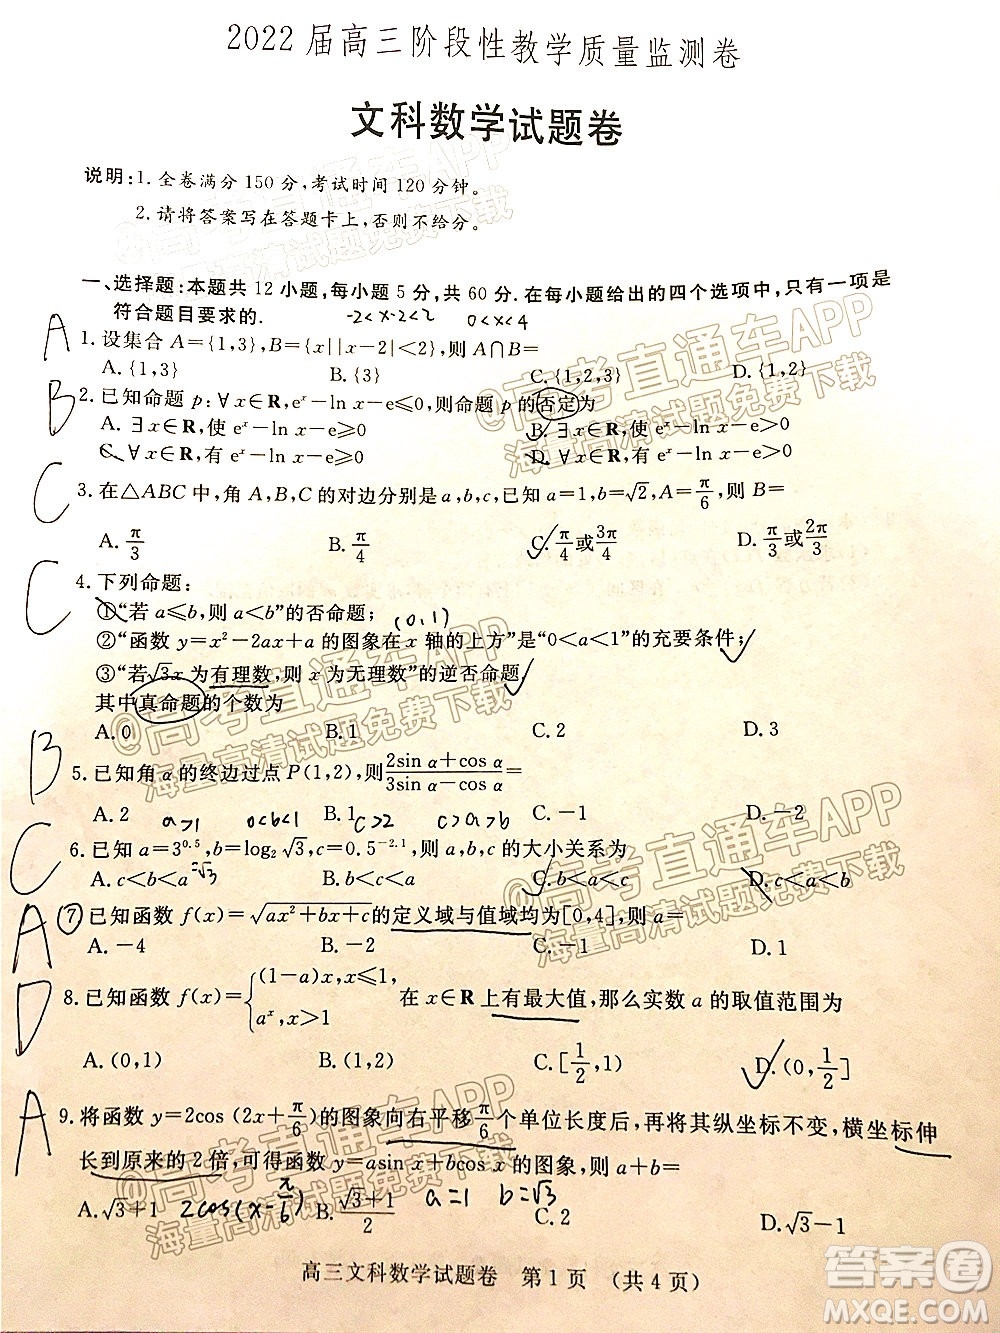 2022届高三阶段性教学质量监测卷
文科数学试题卷
说明:1.全卷满分150分,考试时间120分钟。
2.请将答案写在答题卡上,否则不给分。
一、选择题:本题共12小题,每小题5分,共60分.在每小题给出的四个选项中,只有一项是
符合题目要求的.
-2<x-2<2 0<x<4
A
1.设集合A={1,3},B={x||x-2|<2},则A∩B=
A.{1,3} B.{3} C.{1,2,3} D.{1,2}
B
2.已知命题p:∀x∈R,eˣ-ln x-e≤0,则命题p的否定为
A.∃x∈R,使eˣ-ln x-e≥0 B.∃x∈R,使eˣ-ln x-e>0
C.∀x∈R,有eˣ-ln x-e≥0 D.∀x∈R,有eˣ-ln x-e>0
C
3.在△ABC中,角A,B,C的对边分别是a,b,c,已知a=1,b=√2,A=π/6,则B=
A.π/3 B.π/4 C.π/4或3π/4 D.π/3或2π/3
C
4.下列命题:
①“若a≤b,则a<b”的否命题;
(0,1)
②“函数y=x²-2ax+a的图象在x轴的上方”是“0<a<1”的充要条件;
③“若√3x为有理数,则x为无理数”的逆否命题.
其中真命题的个数为
A.0 B.1 C.2 D.3
B
5.已知角α的终边过点P(1,2),则(2sin α+cos α)/(3sin α-cos α)=
A.2 B.1 C.-1 D.-2
a>1 0<b<1 c>2 c>a>b
C
6.已知a=3^0.5,b=log₂√3,c=0.5^-2.1,则a,b,c的大小关系为
A.c<b<a B.b<c<a C.b<a<c D.c<a<b
√3
A
7.已知函数f(x)=√(ax²+bx+c)的定义域与值域均为[0,4],则a=
A.-4 B.-2 C.-1 D.1
D
8.已知函数f(x)={(1-a)x,x≤1 aˣ,x>1 在x∈R上有最大值,那么实数a的取值范围为
A.(0,1) B.(1,+∞) C.[1/2,1) D.(0,1/2]
A
9.将函数y=2cos(2x+π/6)的图象向右平移π/6个单位长度后,再将其纵坐标不变,横坐标伸
长到原来的2倍,可得函数y=asin x+bcos x的图象,则a+b=
A.√3+1 B.(√3+1)/2 C.2 D.√3-1
2cos(x-π/6) a=1 b=√3
高三文科数学试题卷 第1页 (共4页)
@高考直通车APP
海量高清试题免费下载
@高考直通车APP
海量高清试题免费下载
@高考直通车APP
海量高清试题免费下载
@高考直通车APP
海量高清试题免费下载
@高考直通车APP
海量高清试题免费下载
答案圈
MXQE.COM